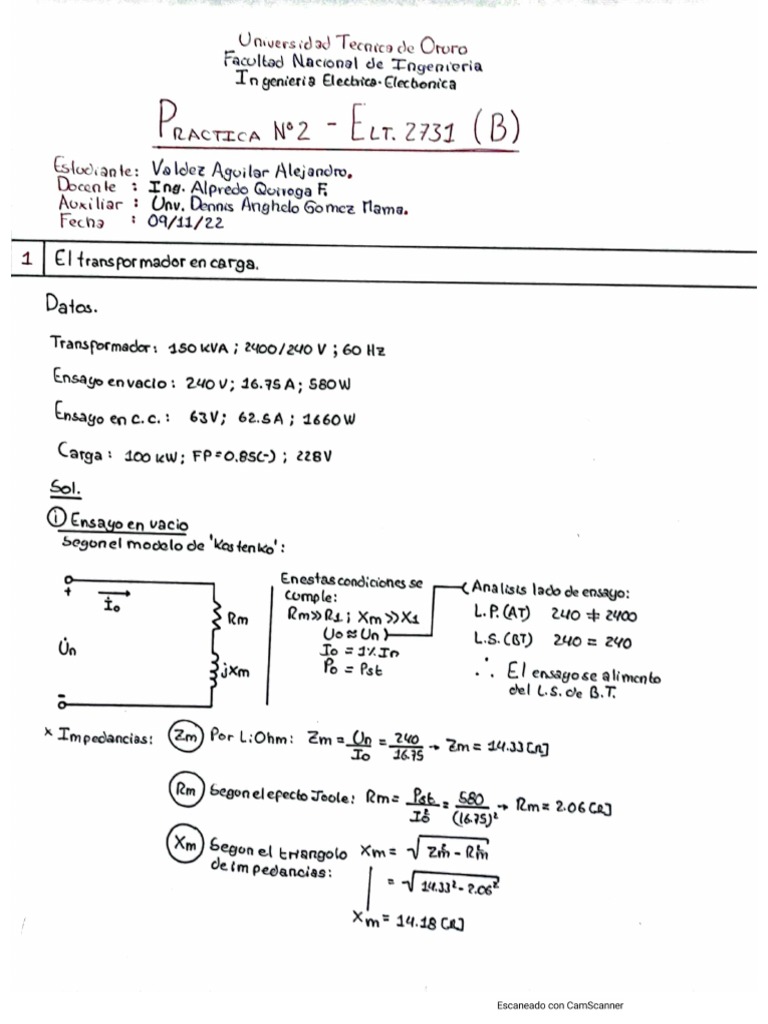 Universidad Tecnica de Oruro
Facultad Nacional de Ingenieria
Ingenieria Electrica-Electronica
PRACTICA Nº2 - ELT. 2731 (B)
Estudiante: Valdez Aguilar Alejandro.
Docente : Ing. Alpredo Quiroga F.
Auxiliar : Unv. Dennis Anghelo Gomez Mama.
Fecha : 09/11/22
1 El transformador en carga.
Datos.
Transformador: 150 KVA ; 2400/240 V ; 60 Hz
Ensayo en vacio : 240 V; 16.75 A; 580W
Ensayo en c.c. : 63V; 62.5A ; 1660W
Carga : 100 kW; FP=0.85(-) ; 228V
Sol.
i Ensayo en vacio
Segun el modelo de 'Kostenko':
+
İo
U̇n
-
Rm
jXm
En estas condiciones se
cumple:
Rm>>R1 ; Xm>>X1
(Uo≈Un)
Io = 1% In
Po = Pst
(Analisis lado de ensayo:
L.P.(AT) 240 ≠ 2400
L.S.(BT) 240 = 240
∴ El ensayo se alimento
del L.S. de B.T.
* Impedancias: (Zm) Por L:Ohm: Zm = Un/Io = 240/16.75 → Zm = 14.33[Ω]
(Rm) Segun el efecto Joule: Rm = Pst/Io² = 580/(16.75)² → Rm = 2.06[Ω]
(Xm) Segun el triangulo de impedancias: Xm = √(Zm² - Rm²)
= √(14.33² - 2.06²)
Xm = 14.18[Ω]
Escaneado con CamScanner